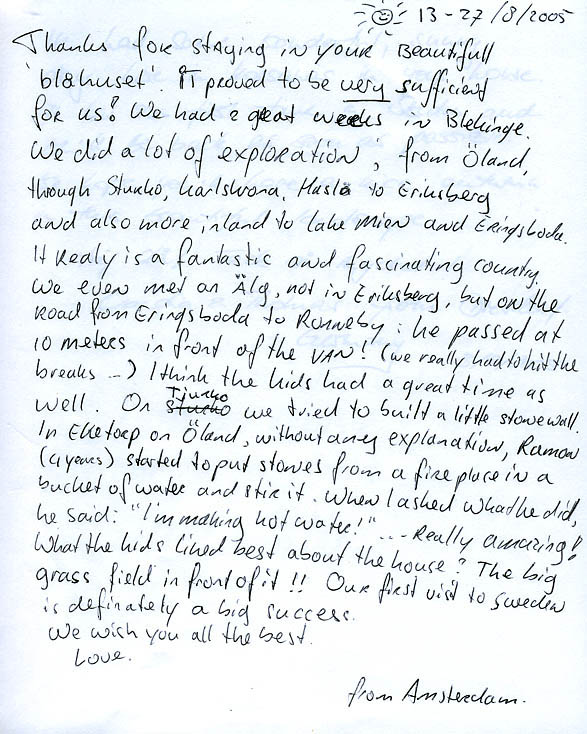 13 - 27/8/2005
Thanks for staying in your Beautifull
'blåhuset'. It proved to be very sufficient
for us! We had 2 great weeks in Blekinge.
We did a lot of 'exploration', from Öland,
through Sturkö, Karlskrona, Hasslö to Eriksberg
and also more inland to lake Mien and Eringsboda.
It Realy is a fantastic and fascinating country.
We even met an Älg, not in Eriksberg, but on the
Road from Eringsboda to Ronneby: he passed at
10 meters in front of the VAN! (we really had to hit the
breaks --) I think the kids had a great time as
well. On Tjurkö we tried to built a little stonewall.
In Eketorp on Öland, without any explanation, Ramon
(4 years) started to put stones from a fireplace in a
bucket of water and stir it. When I asked what he did,
he said: "I'm making hot water!" --- Really amazing!
What the kids liked best about the house? The big
grass field in front of it!! Our first visit to Sweden
is definately a big success.
We wish you all the best.
Love.
from Amsterdam.